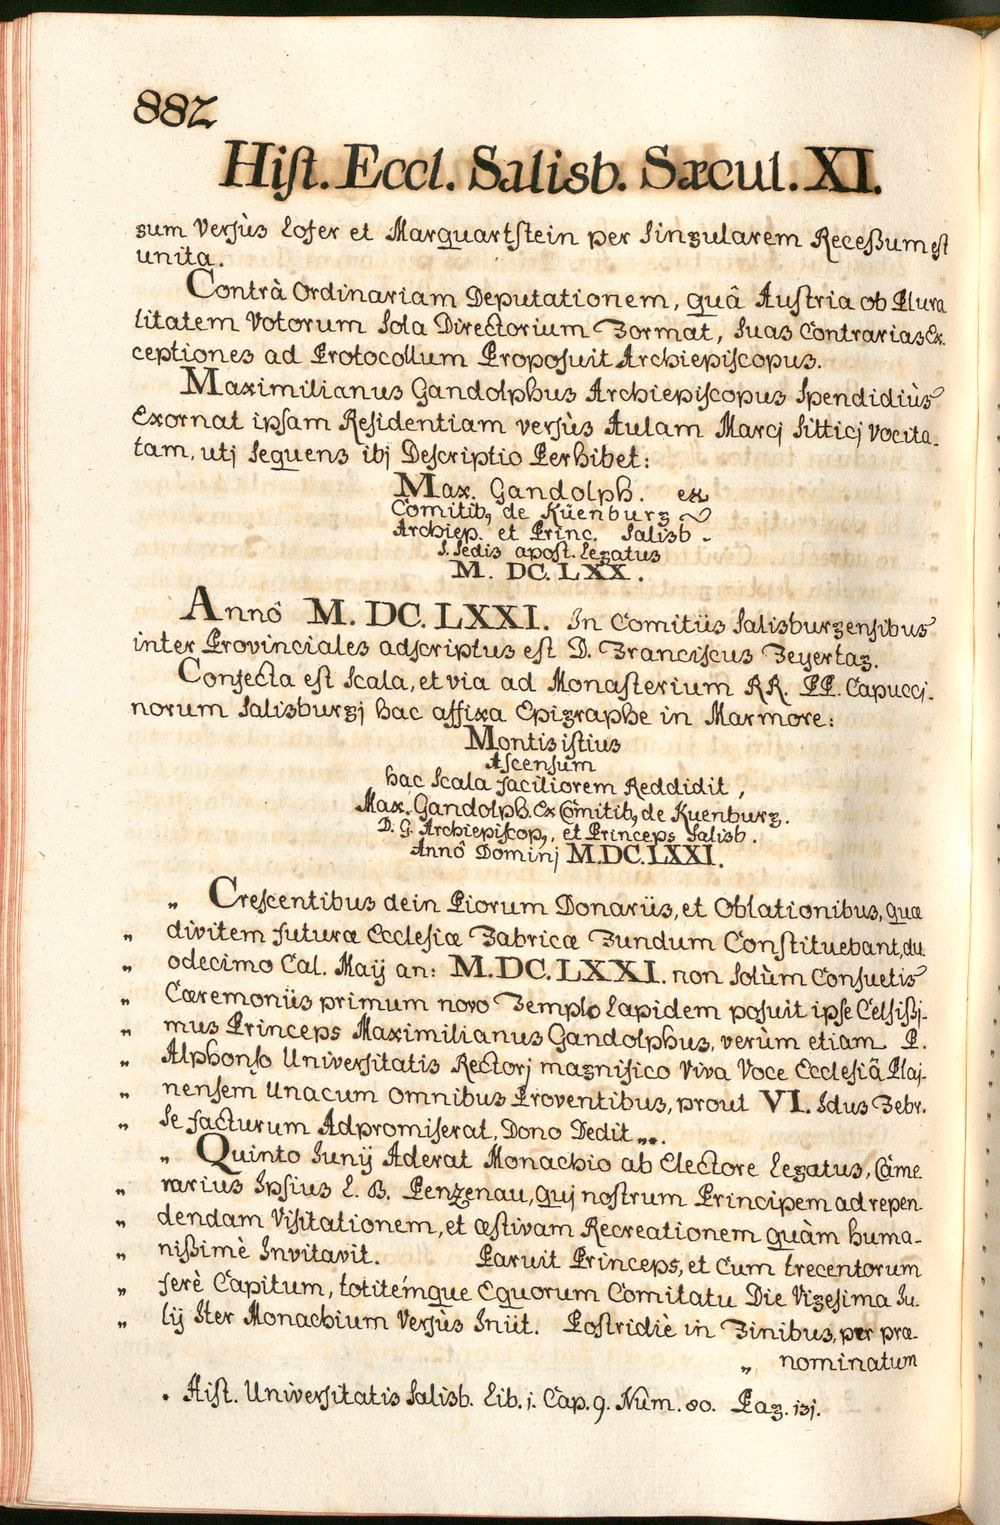 882
Hist. Eccl. Salisb. Sæcul. XI.
gum Versùs Lofer et Marquartstein per singularem Recessum est
unita.
Contrà Ordinariam Deputationem, quâ Austria ob Plura
litatem Votorum sola Directorium Format, suas Contrarias Ex-
ceptiones ad Protocollum Proposuit Archiepiscopus.
Maximilianus Gandolphus Archiepiscopus spendidiùs
Exornat ipsam Residentiam versùs Aulam Marcj Sitticj Vocita-
tam, utj sequens ibj Descriptio Perhibet:
Max. Gandolph. ex
Comitib, de Küenburg
Archiep. et Princ. Salisb.
S. Sedis apost. Legatus
M. DC. LXX.
Annô M. DC. LXXI. In Comitiis Salisburgensibus
inter Provinciales adscriptus est D. Franciscus Feyertag.
Confecta est scala, et via ad Monasterium RR. PP. Capucci-
norum Salisburgj hac affixa Epigraphe in Marmore:
Montis istius
Ascensum
hac scala faciliorem Reddidit,
Max. Gandolph. Ex Comitib, de Kuenburg.
D. G. Archiepiscop, et Princeps Salisb.
Annô Dominj M.DC.LXXI.
„ Crescentibus dein Piorum Donariis, et Oblationibus, quæ
„ divitem futuræ Ecclesiæ Fabricæ Fundum Constituebant, du
„ odecimo Cal. Maij an: M.DC.LXXI. non solùm Consuetis
„ Cæremoniis primum novo Templo Lapidem posuit ipse Celsissj-
„ mus Princeps Maximilianus Gandolphus, verùm etiam P.
„ Alphonso Universitatis Rectorj magnifico Viva Voce Ecclesiâ Plaj-
„ nensem unacum omnibus Proventibus, prout VI. Idus Febr.
„ se facturum Adpromiserat, Dono Dedit „.
„ Quinto Junij Aderat Monachio ab Electore Legatus, Came
„ rarius Ipsius L. B. Penzenau, quj nostrum Principem ad repen-
„ dendam Visitationem, et æstivam Recreationem quàm huma-
„ nissimè Invitavit. Paruit Princeps, et Cum trecentorum
„ ferè Capitum, totitémque Equorum Comitatu Die Vigesima Ju-
„ lij Iter Monachium Versùs Iniit. Postridiè in Finibus, per præ-
„ nominatum
. Hist. Universitatis Salisb. Lib. j. Cap. 9. Num. 80. Pag. 131.